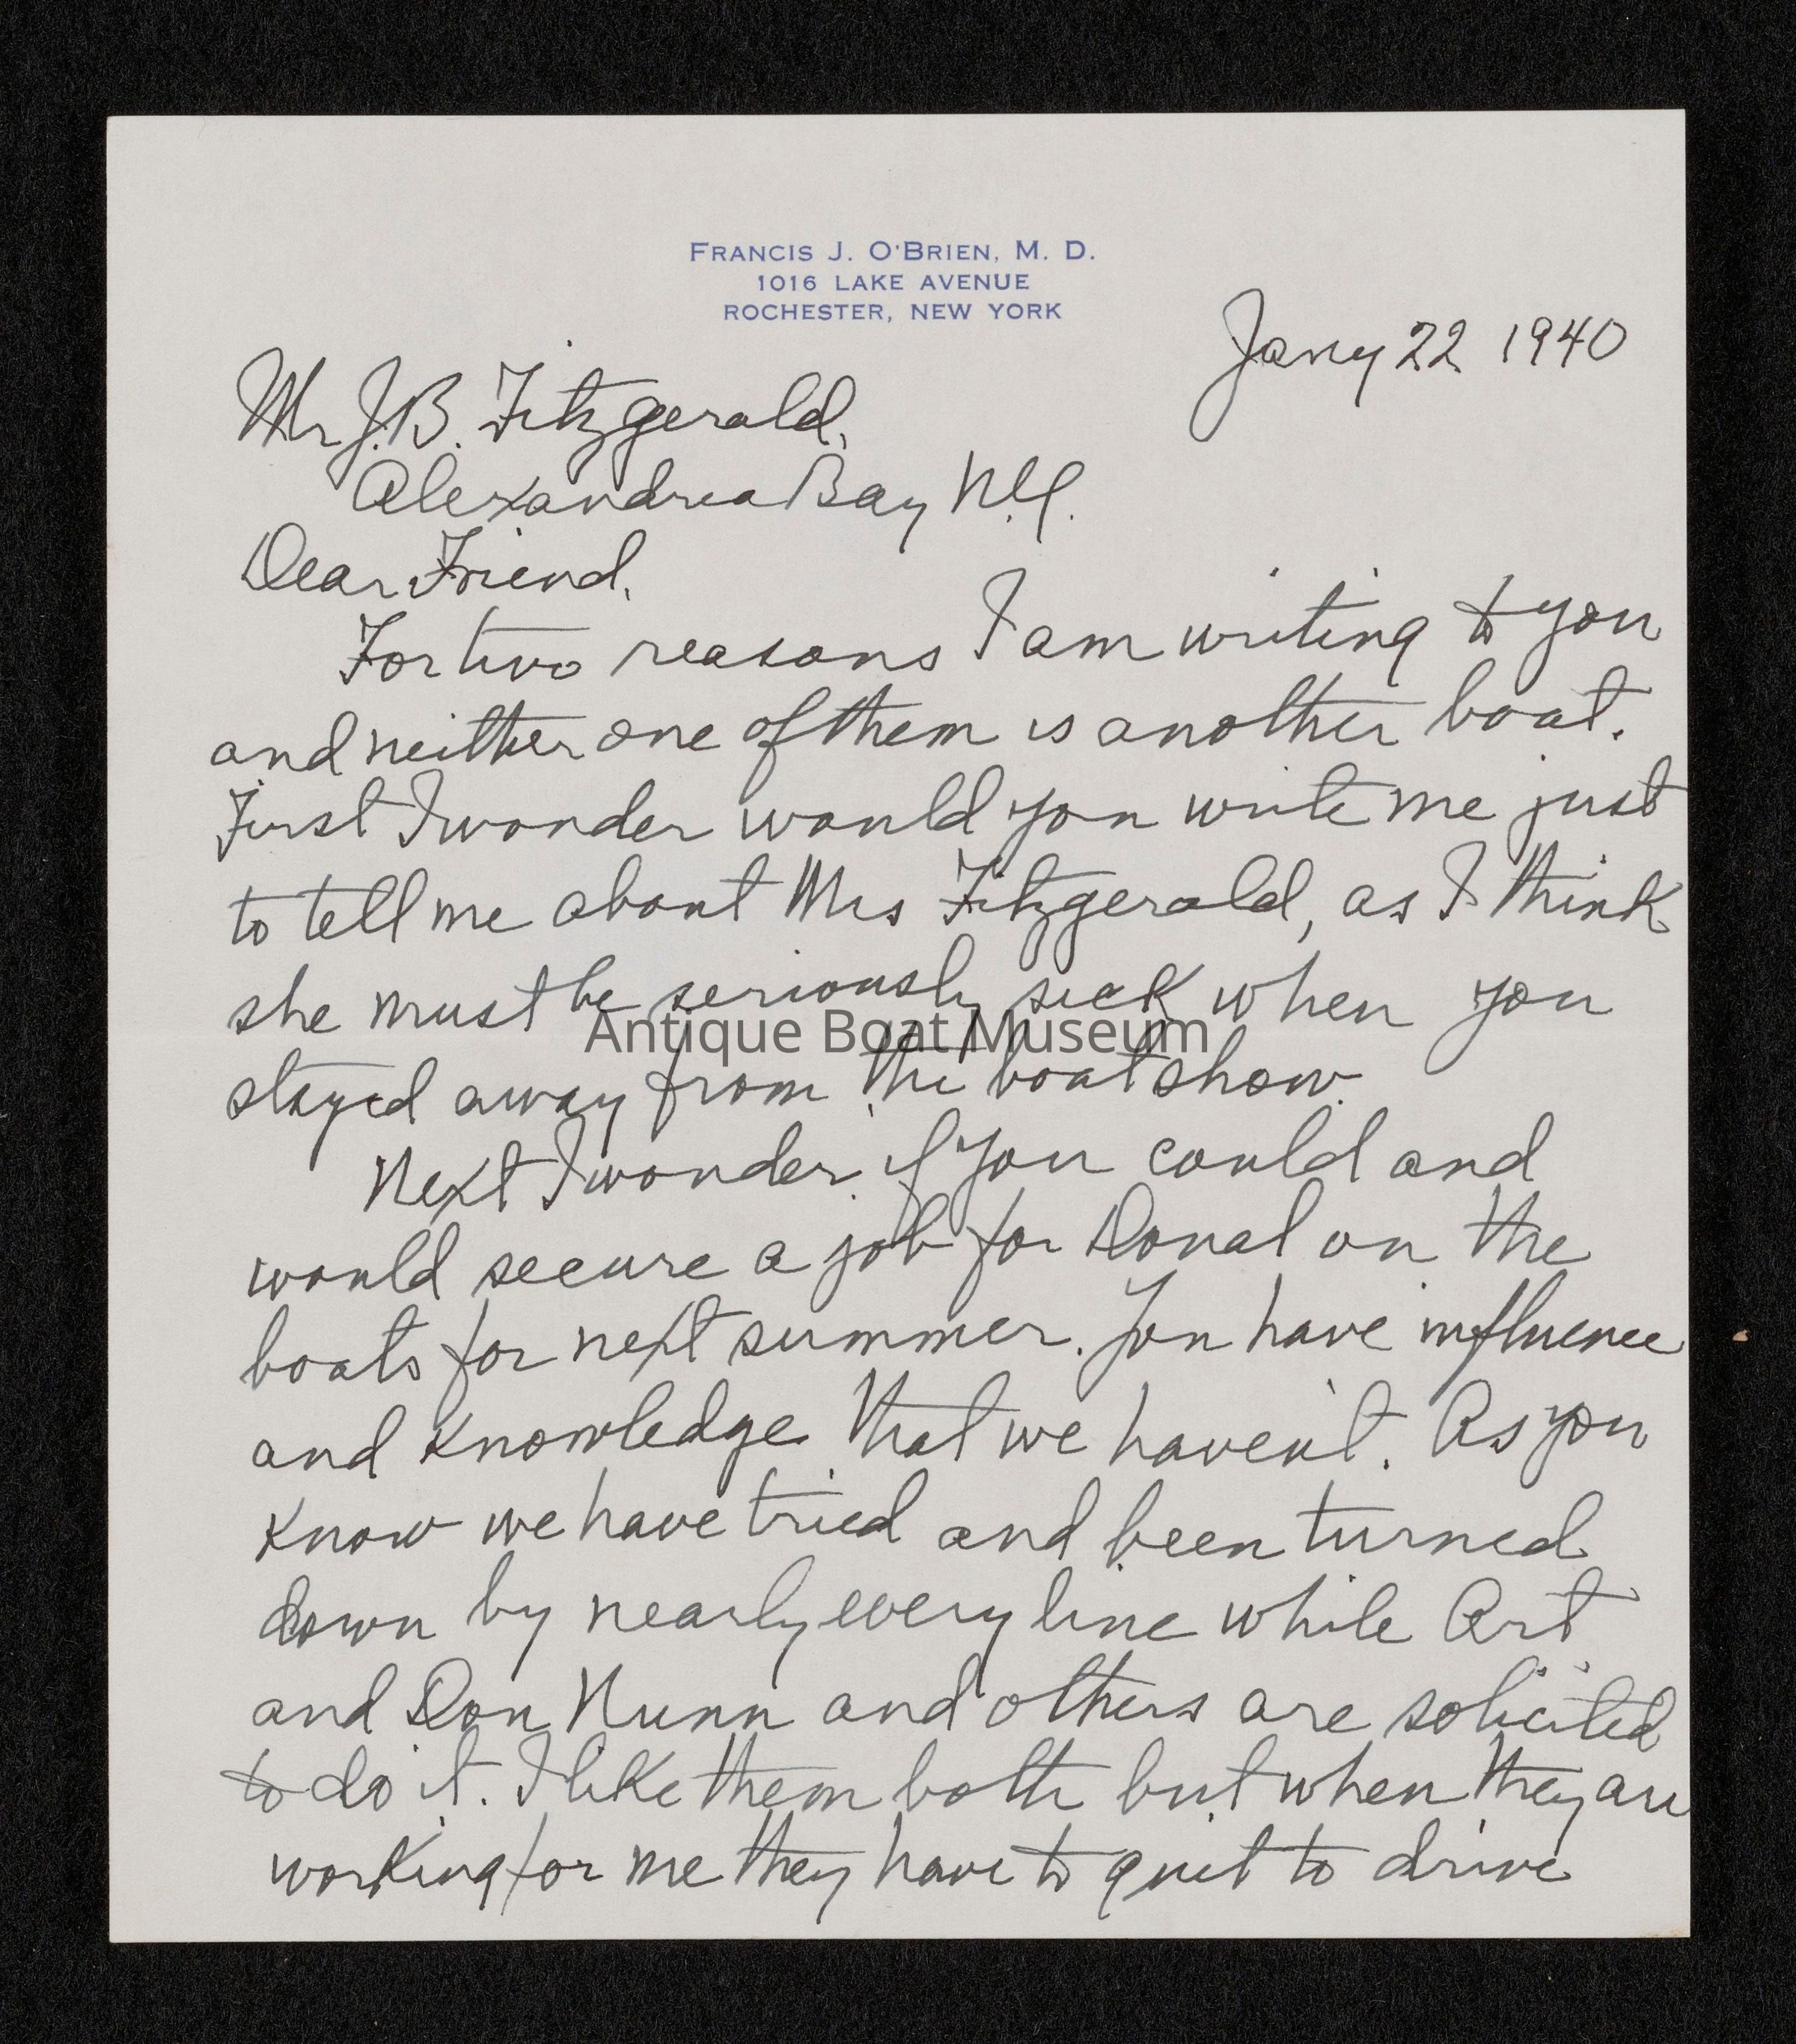 FRANCIS J. O'BRIEN, M. D.
1016 LAKE AVENUE
ROCHESTER, NEW YORK
Jany 22 1940
Mr J.B. Fitzgerald,
Alexandria Bay N.Y.
Dear Friend,
For two reasons I am writing to you
and neither one of them is another boat.
First I wonder would you write me just
to tell me about Mrs Fitzgerald, as I think
she must be seriously sick when you
Antique Boat Museum
stayed away from the boat show.
Next I wonder if you could and
would secure a job for Donal on the
boats for next summer. You have influence
and knowledge that we haven't. As you
know we have tried and been turned
down by nearly every line while Art
and Don Nunn and others are solicited
to do it. I like them both but when they are
working for me they have to quit to drive